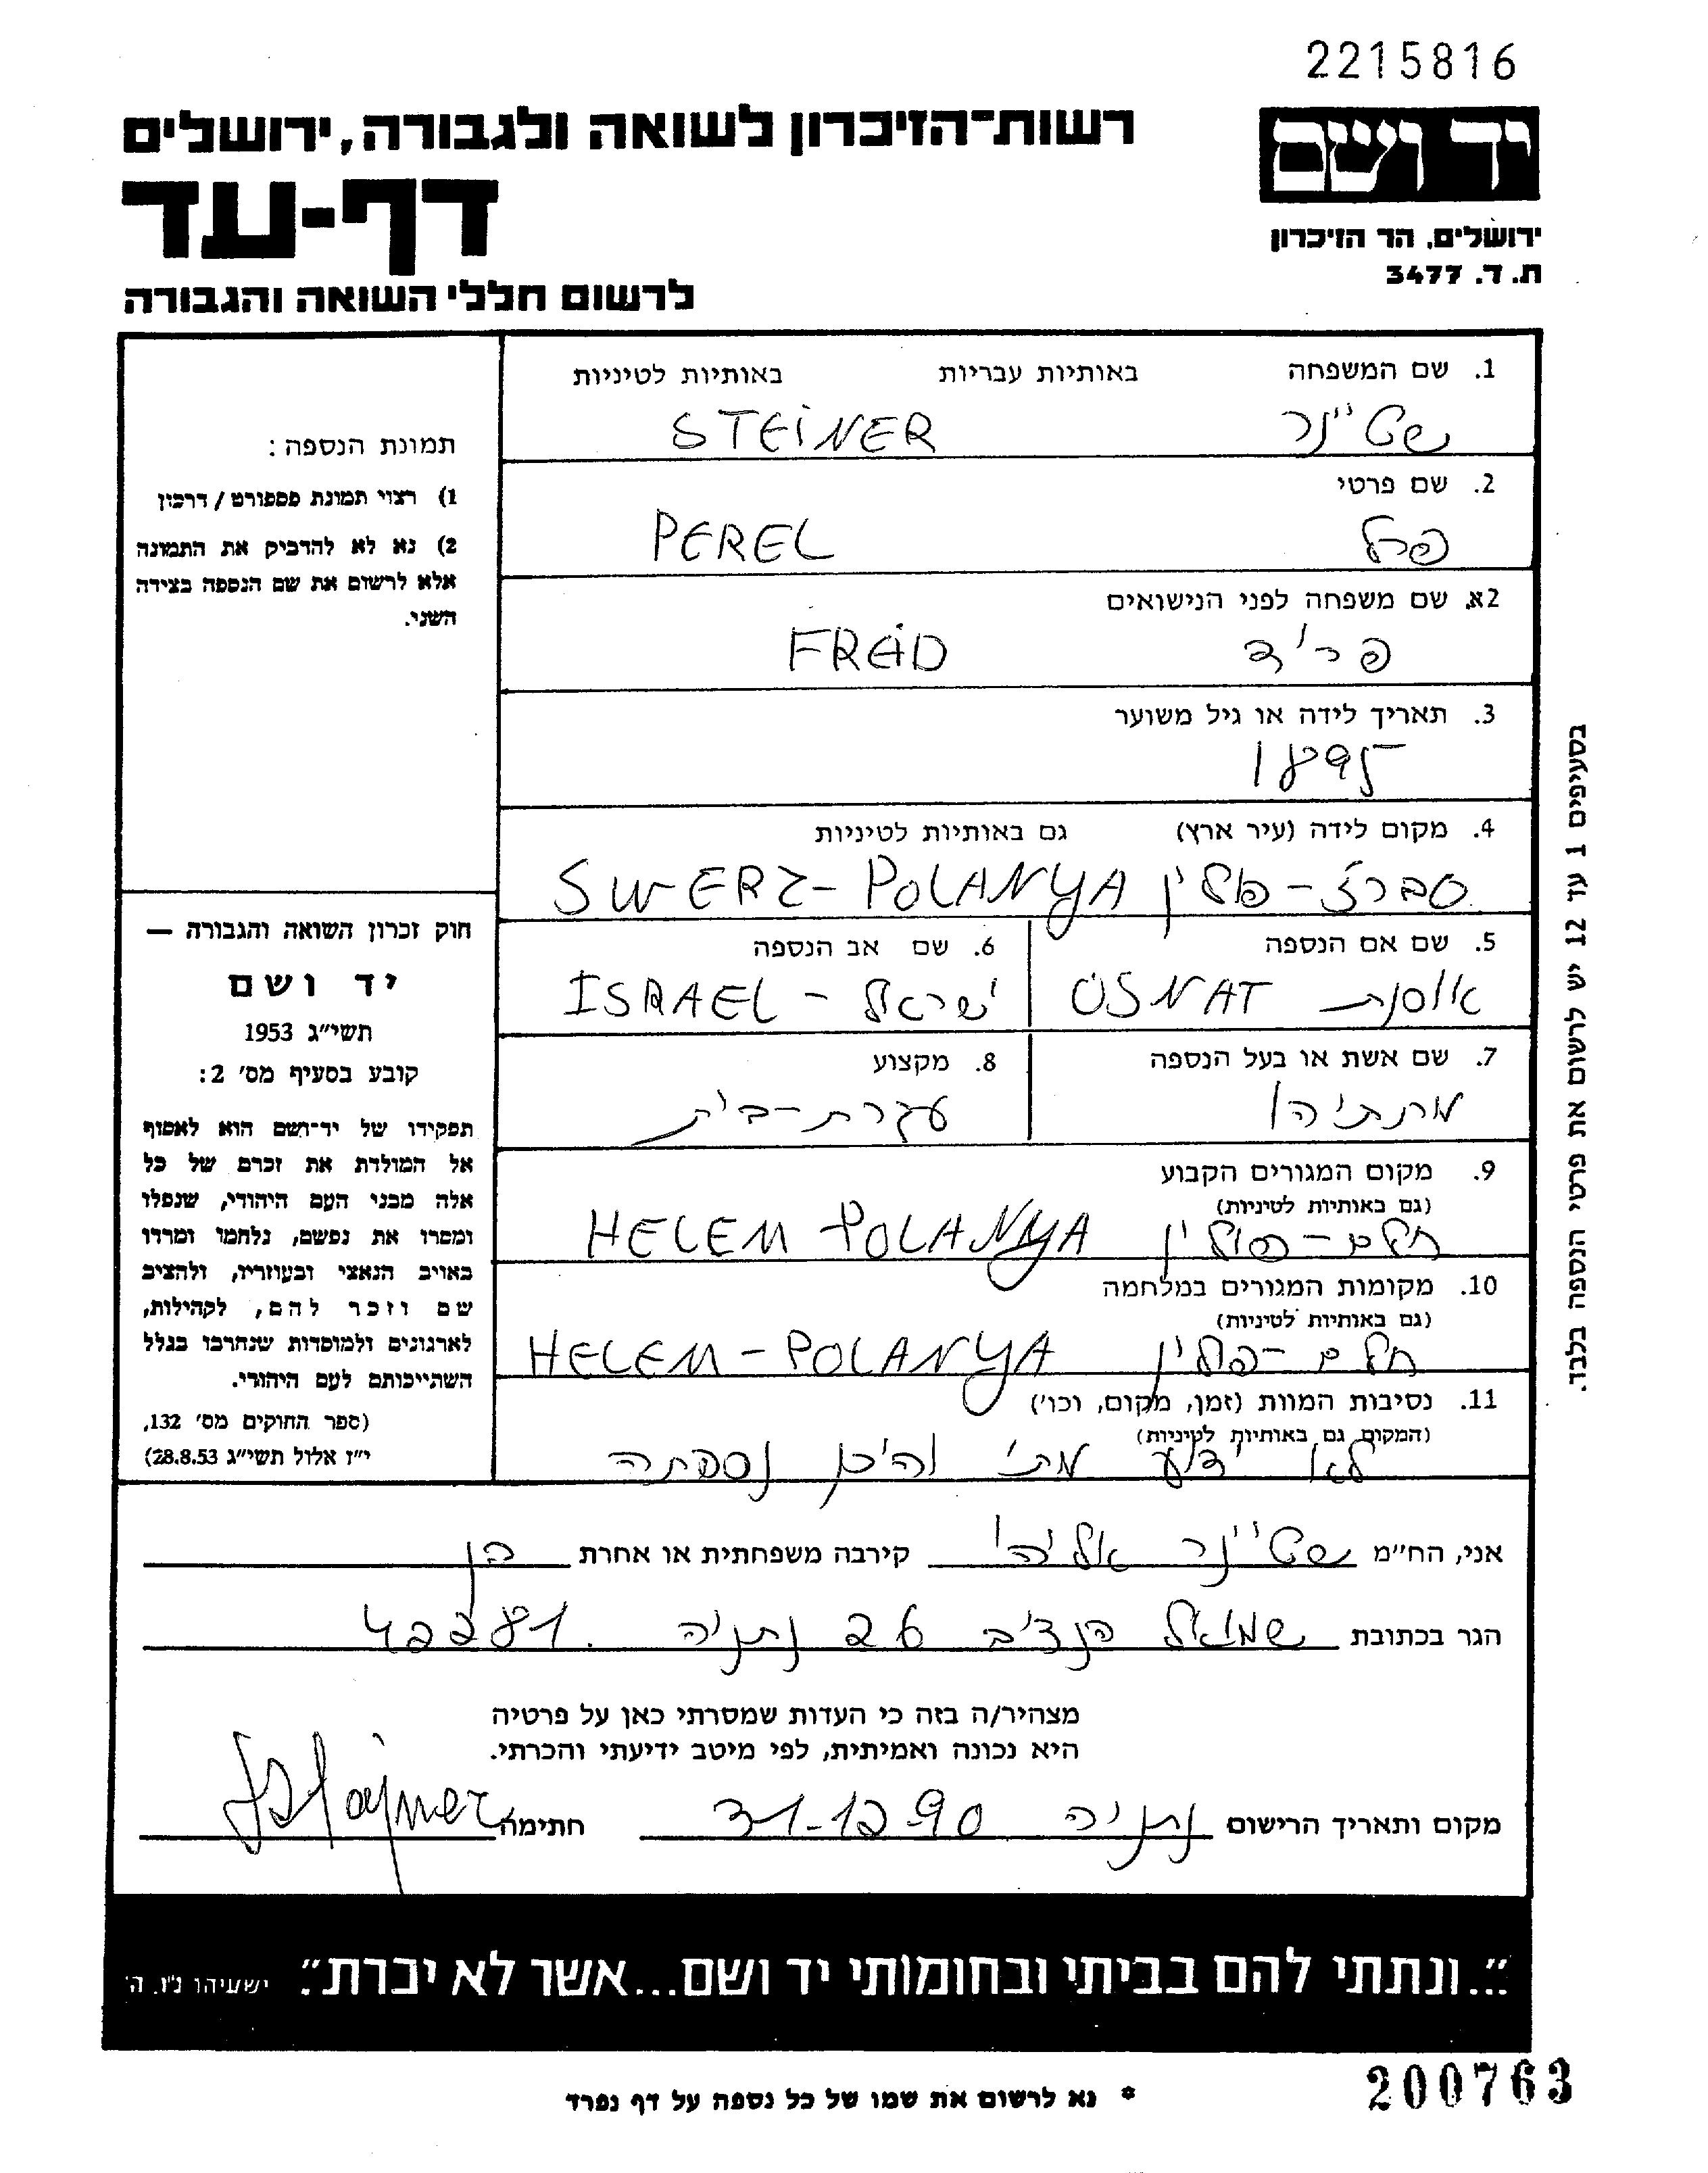 2215816
רשות-הזיכרון לשואה ולגבורה, ירושלים
יד ושם
דף-עד
ירושלים, הר הזיכרון
ת. ד. 3477
לרשום חללי השואה והגבורה
1. שם המשפחה באותיות עבריות באותיות לטיניות
שטיינר STEINER
2. שם פרטי
פרל PEREL
2א. שם משפחה לפני הנישואים
פריד FREID
3. תאריך לידה או גיל משוער
1895
4. מקום לידה (עיר ארץ) גם באותיות לטיניות
סברז - פולין SWERZ - POLANYA
5. שם אם הנספה
אוסנת OSNAT
6. שם אב הנספה
ישראל - ISRAEL
7. שם אשת או בעל הנספה
מתתיהו
8. מקצוע
עקרת-בית
9. מקום המגורים הקבוע
(גם באותיות לטיניות)
חלם - פולין HELEM - POLANYA
10. מקומות המגורים במלחמה
(גם באותיות לטיניות)
חלם - פולין HELEM - POLANYA
11. נסיבות המוות (זמן, מקום, וכו')
(המקום גם באותיות לטיניות)
לא ידוע מתי והיכן נספתה
תמונת הנספה:
1) רצוי תמונת פספורט / דרכון
2) נא לא להדביק את התמונה
אלא לרשום את שם הנספה בצידה
השני.
חוק זכרון השואה והגבורה —
יד ושם
תשי״ג 1953
קובע בסעיף מס' 2:
תפקידו של יד-ושם הוא לאסוף
אל המולדת את זכרם של כל
אלה מבני העם היהודי, שנפלו
ומסרו את נפשם, נלחמו ומרדו
באויב הנאצי ובעוזריו, ולהציב
שם וזכר להם, לקהילות,
לארגונים ולמוסדות שנחרבו בגלל
השתייכותם לעם היהודי.
(ספר החוקים מס' 132,
י״ז אלול תשי״ג 28.8.53)
בסעיפים 1 עד 12 יש לרשום את פרטי הנספה בלבד.
אני, הח״מ שטיינר אליהו קירבה משפחתית או אחרת בן
הגר בכתובת שמואל הנציב 26 נתניה 42281.
מצהיר/ה בזה כי העדות שמסרתי כאן על פרטיה
היא נכונה ואמיתית, לפי מיטב ידיעתי והכרתי.
מקום ותאריך הרישום נתניה 31-12-90 חתימה
"...ונתתי להם בביתי ובחומותי יד ושם...אשר לא יכרת." ישעיהו נ״ו, ה'
200763
* נא לרשום את שמו של כל נספה על דף נפרד